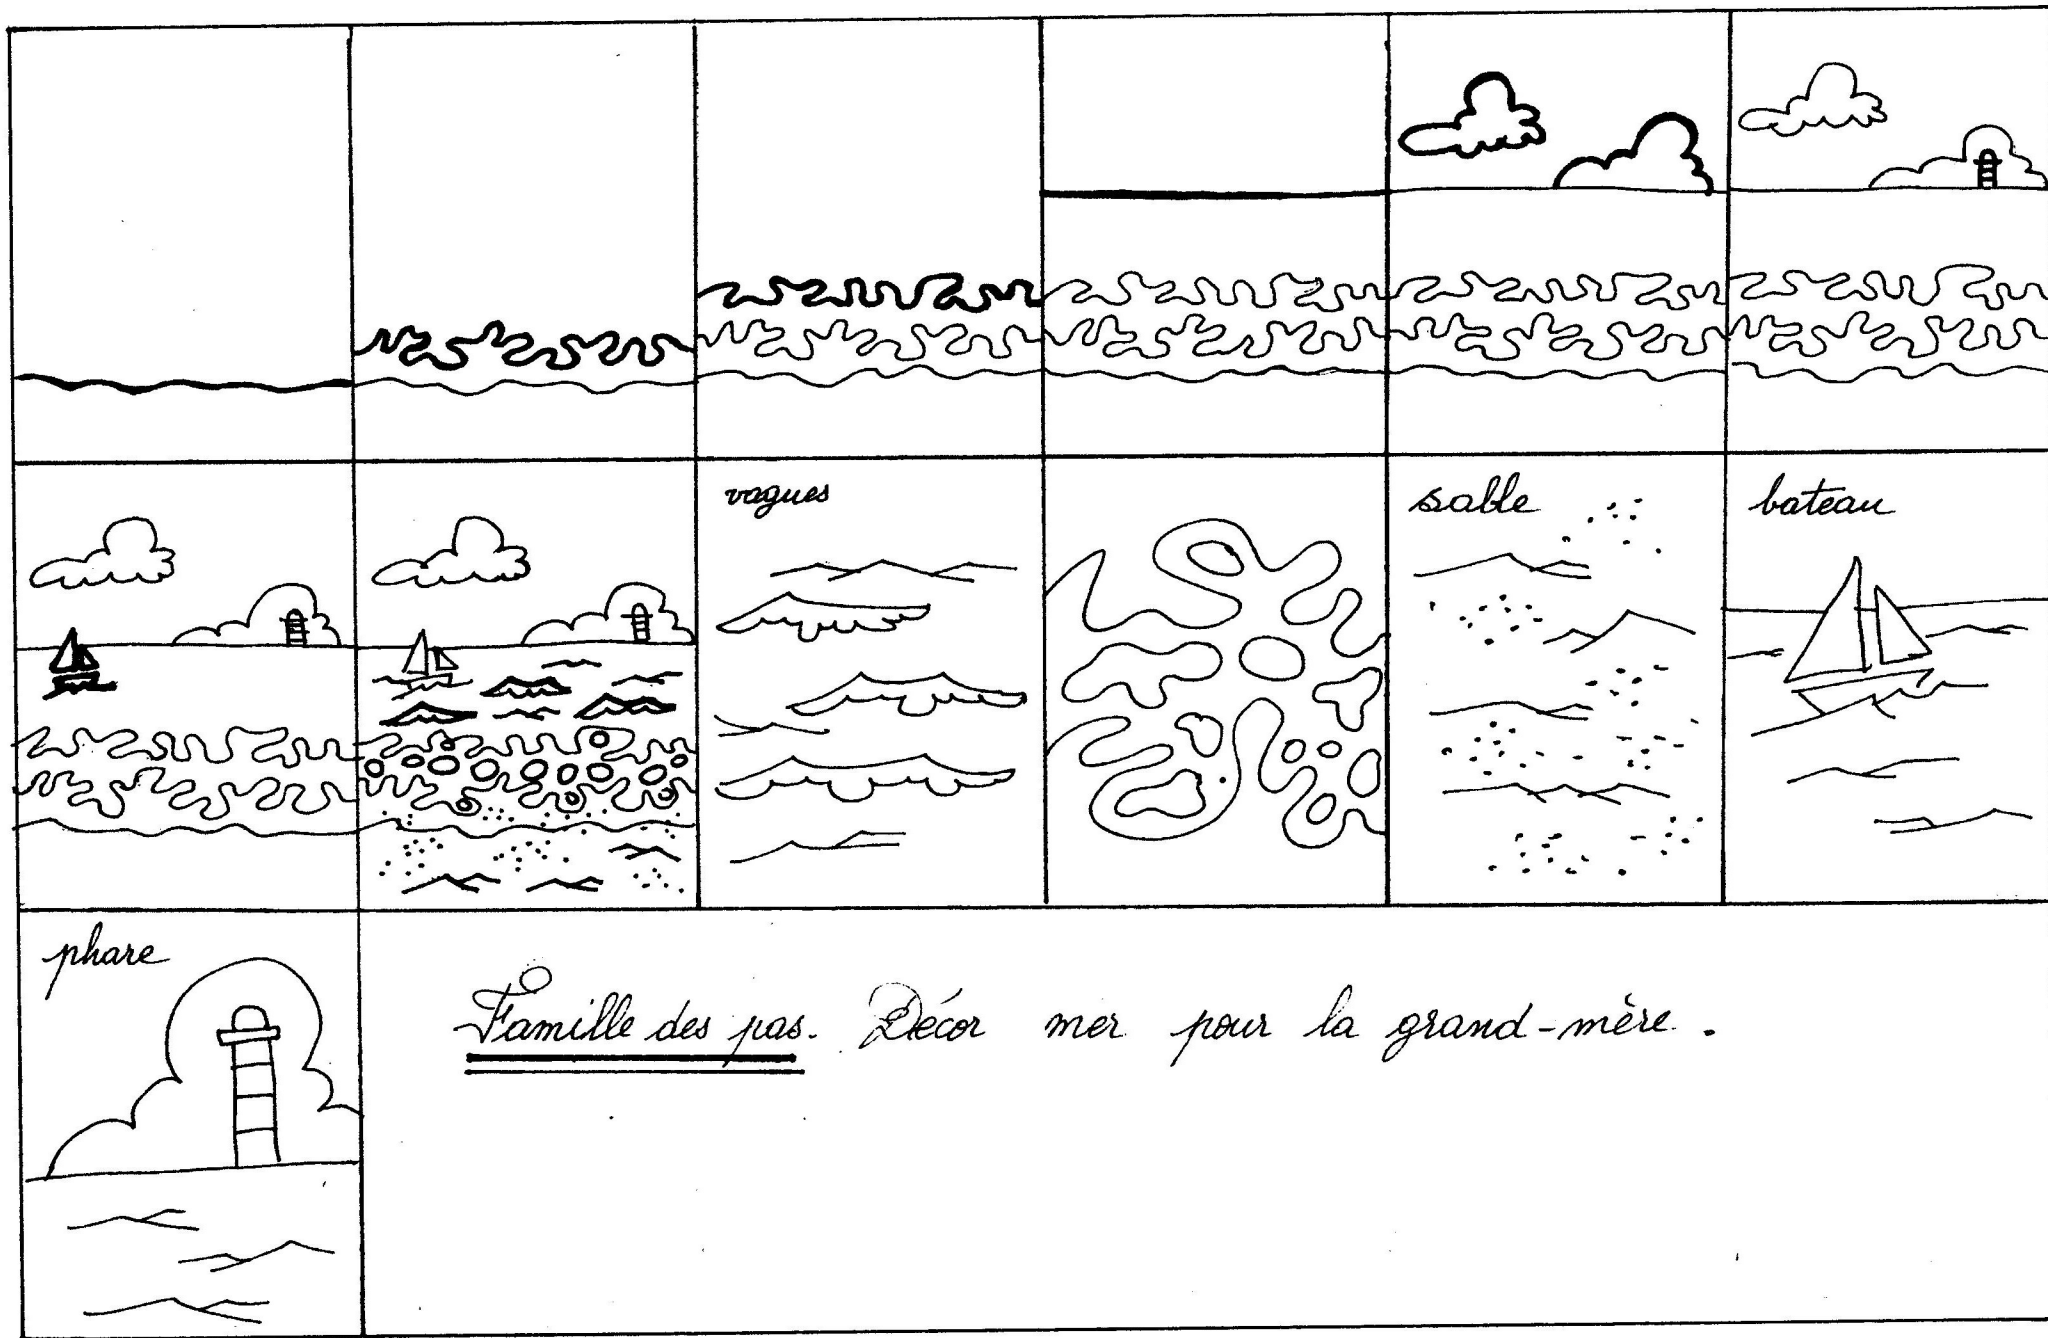 vagues
sable
bateau
phare
Famille des pas. Décor mer pour la grand-mère.